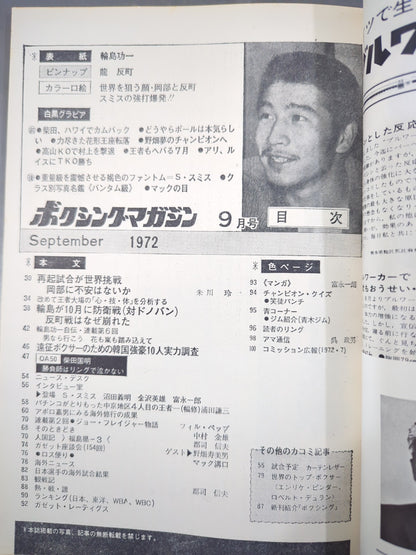 表紙 輪島功一
ピンナップ 龍 反町
カラー口絵 世界を狙う顔・岡部と反町
スミスの強打爆発!!
白黒グラビア
●柴田、ハワイでカムバック ●どうやらポールは本気らしい
●力尽きた花形王座転落 ●野畑夢のチャンピオンへ
●高山KOで村上を撃退 ●王者もへバる7月 ●アリ、ルイスにTKO勝ち
●重量級を震憾させる褐色のファントム=S・スミス ●クラス別写真名鑑〈バンタム級〉 ●マックの目
ボクシング・マガジン 9月号 目次
September 1972
本文
30 再起試合が世界挑戦
岡部に不安はないか
34 改めて王者大場の「心・技・体」を分析する
38 輪島が10月に防衛戦(対ドノバン)
反町戦はなぜ崩れた
42 輪島功一自伝・連載第6回
男なら行こう 花も嵐も踏み込えて
46 遠征ボクサーのための韓国強豪10人実力調査
47 QA50 柴田国明
勝負師はリングで泣かない
54 ニュース・デスク
56 インタビュー室
▶登場 S・スミス 沼田義明 金沢英雄 富永一郎
58 パチンコがとりもった中京地区4人目の王者―(飯修)浦田謙三
60 アポロ嘉男にみる海外修行の成果
70 連載第2回 ●ジョー・フレイジャー物語 フィル・ペップ
68 そのときどき 中村 金雄
70 人国記 郡司 信夫
74 ガゼット座談会(154回)
76 ●ロス便り● ゲスト▶野畑寿美男
78 海外ニュース マック溝口
82 日本選手の海外試合結果
83 観戦記
88 熱・戦・譜 郡司 信夫
90 ランキング(日本、東洋、WBA、WBC)
92 ガゼット・レーティングス
色ページ
93 《マンガ》 富永一郎
94 チャンピオン・クイズ
●笑徒パンチ
95 青コーナー
●ジム紹介(青木ジム)
96 読者のリング
98 アマ通信
100 コミッション広報(1972・7)
その他のカコミ記事
55 試合予定 カーテンレザー
79 世界のトップ・ボクサー
(エンリケ・ピンダー、
ロベルト・デュラン)
87 新刊紹介「ボクシング」
※本誌掲載の写真、記事の無断転載を禁じます。